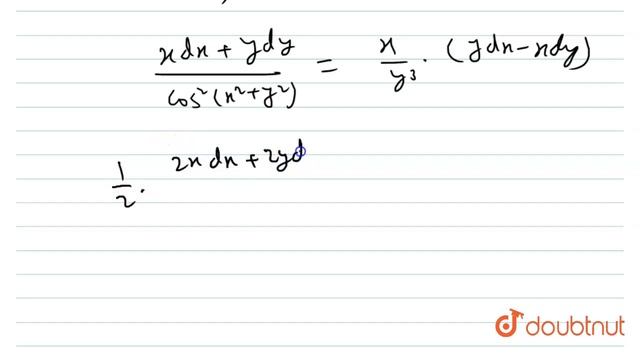 x dx + y dy / cos²(x²+y²) = x / y³ · (y dx - x dy)
1/2 · 2x dx + 2y d
doubtnut